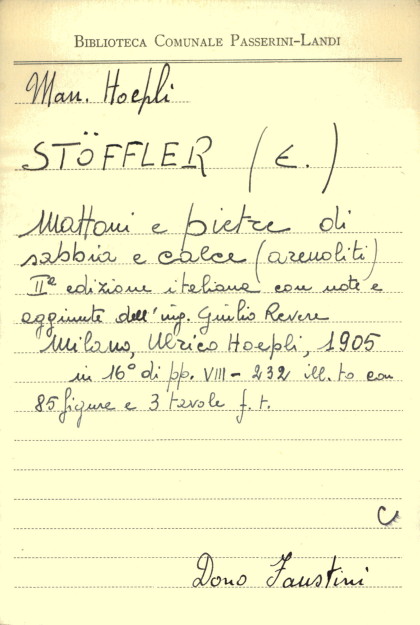 BIBLIOTECA COMUNALE PASSERINI-LANDI
Man. Hoepli
STÖFFLER (E.)
Mattoni e pietre di
sabbia e calce (arenoliti)
IIª edizione italiana con note e
aggiunte dell'ing. Giulio Revere
Milano, Ulrico Hoepli, 1905
in 16° di pp. VIII - 232 ill.to con
85 figure e 3 tavole f. t.
C
Dono Faustini